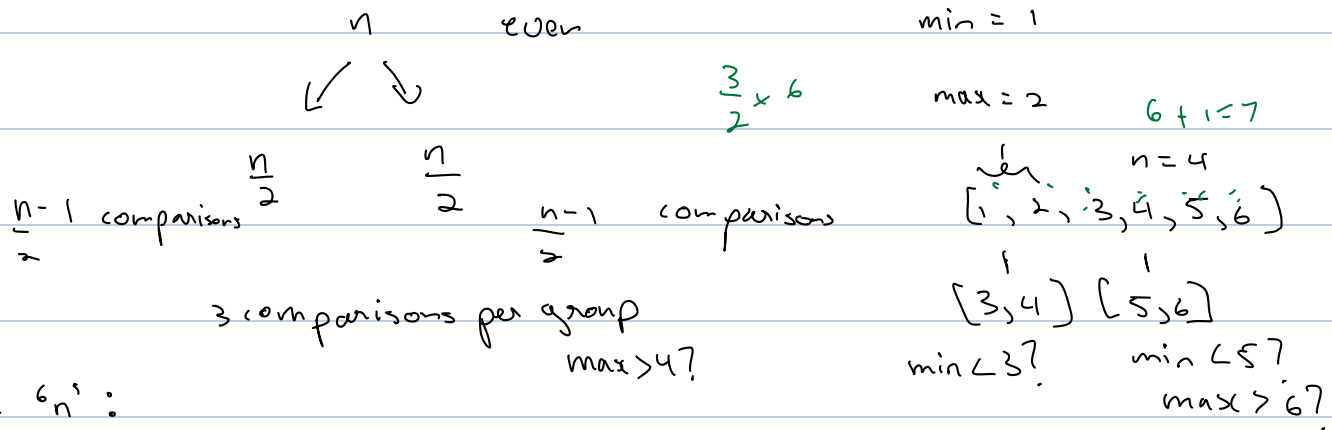 n even min = 1
3/2 × 6 max = 2 6 + 1 = 7
n/2 n/2 1 n = 4
n/2 - 1 comparisons n/2 - 1 comparisons [1, 2, 3, 4, 5, 6]
1 1
3 comparisons per group [3,4] [5,6]
max>4? min<3? min<5?
'n' : max>6?